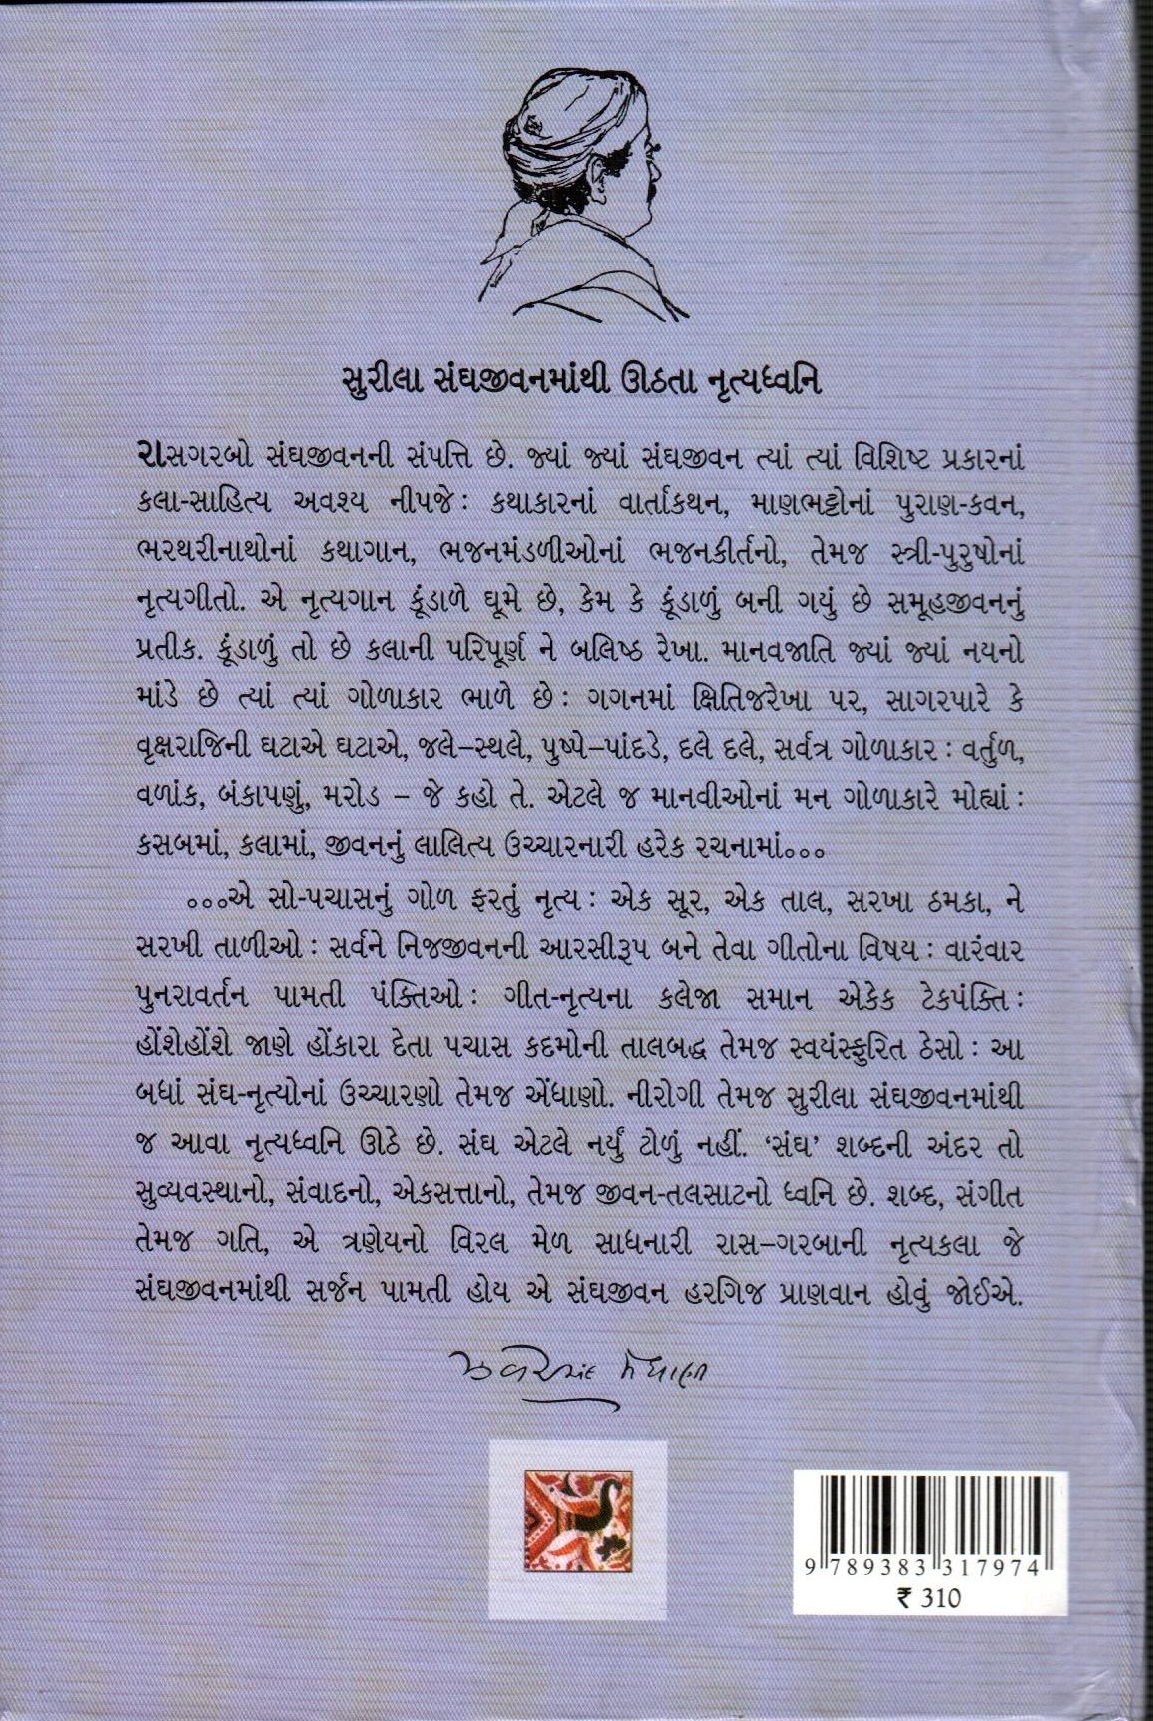 સુરીલા સંઘજીવનમાંથી ઊઠતા નૃત્યધ્વનિ
રાસગરબો સંઘજીવનની સંપત્તિ છે. જ્યાં જ્યાં સંઘજીવન ત્યાં ત્યાં વિશિષ્ટ પ્રકારનાં
કલા-સાહિત્ય અવશ્ય નીપજે : કથાકારનાં વાર્તાકથન, માણભટ્ટોનાં પુરાણ-કવન,
ભરથરીનાથોનાં કથાગાન, ભજનમંડળીઓનાં ભજનકીર્તનો, તેમજ સ્ત્રી-પુરુષોનાં
નૃત્યગીતો. એ નૃત્યગાન કૂંડાળે ઘૂમે છે, કેમ કે કૂંડાળું બની ગયું છે સમૂહજીવનનું
પ્રતીક. કૂંડાળું તો છે કલાની પરિપૂર્ણ ને બલિષ્ઠ રેખા. માનવજાતિ જ્યાં જ્યાં નયનો
માંડે છે ત્યાં ત્યાં ગોળાકાર ભાળે છે : ગગનમાં ક્ષિતિજરેખા પર, સાગરપારે કે
વૃક્ષરાજિની ઘટાએ ઘટાએ, જલે–સ્થલે, પુષ્પે–પાંદડે, દલે દલે, સર્વત્ર ગોળાકાર : વર્તુળ,
વળાંક, બંકાપણું, મરોડ – જે કહો તે. એટલે જ માનવીઓનાં મન ગોળાકારે મોહ્યાં :
કસબમાં, કલામાં, જીવનનું લાલિત્ય ઉચ્ચારનારી હરેક રચનામાં...
...એ સો-પચાસનું ગોળ ફરતું નૃત્ય : એક સૂર, એક તાલ, સરખા ઠમકા, ને
સરખી તાળીઓ : સર્વને નિજજીવનની આરસીરૂપ બને તેવા ગીતોના વિષય : વારંવાર
પુનરાવર્તન પામતી પંક્તિઓ : ગીત-નૃત્યના કલેજા સમાન એકેક ટેકપંક્તિ :
હોંશેહોંશે જાણે હોંકારા દેતા પચાસ કદમોની તાલબદ્ધ તેમજ સ્વયંસ્ફુરિત ઠેસો : આ
બધાં સંઘ-નૃત્યોનાં ઉચ્ચારણો તેમજ એંધાણો. નીરોગી તેમજ સુરીલા સંઘજીવનમાંથી
જ આવા નૃત્યધ્વનિ ઊઠે છે. સંઘ એટલે નર્યું ટોળું નહીં. ‘સંઘ’ શબ્દની અંદર તો
સુવ્યવસ્થાનો, સંવાદનો, એકસત્તાનો, તેમજ જીવન-તલસાટનો ધ્વનિ છે. શબ્દ, સંગીત
તેમજ ગતિ, એ ત્રણેયનો વિરલ મેળ સાધનારી રાસ–ગરબાની નૃત્યકલા જે
સંઘજીવનમાંથી સર્જન પામતી હોય એ સંઘજીવન હરગિજ પ્રાણવાન હોવું જોઈએ.
ઝવેરચંદ મેઘાણી
9 789383 317974
₹ 310